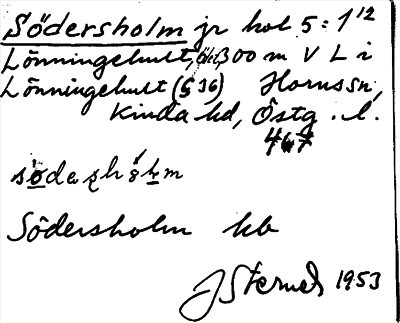 Södersholm jr hol 5:1¹²
Lönningehult, 300 m V L i
Lönningehult (S 36) Hornssn,
Kinda hd, Östg. l.
467
Södersholm hb
J Sterner 1953